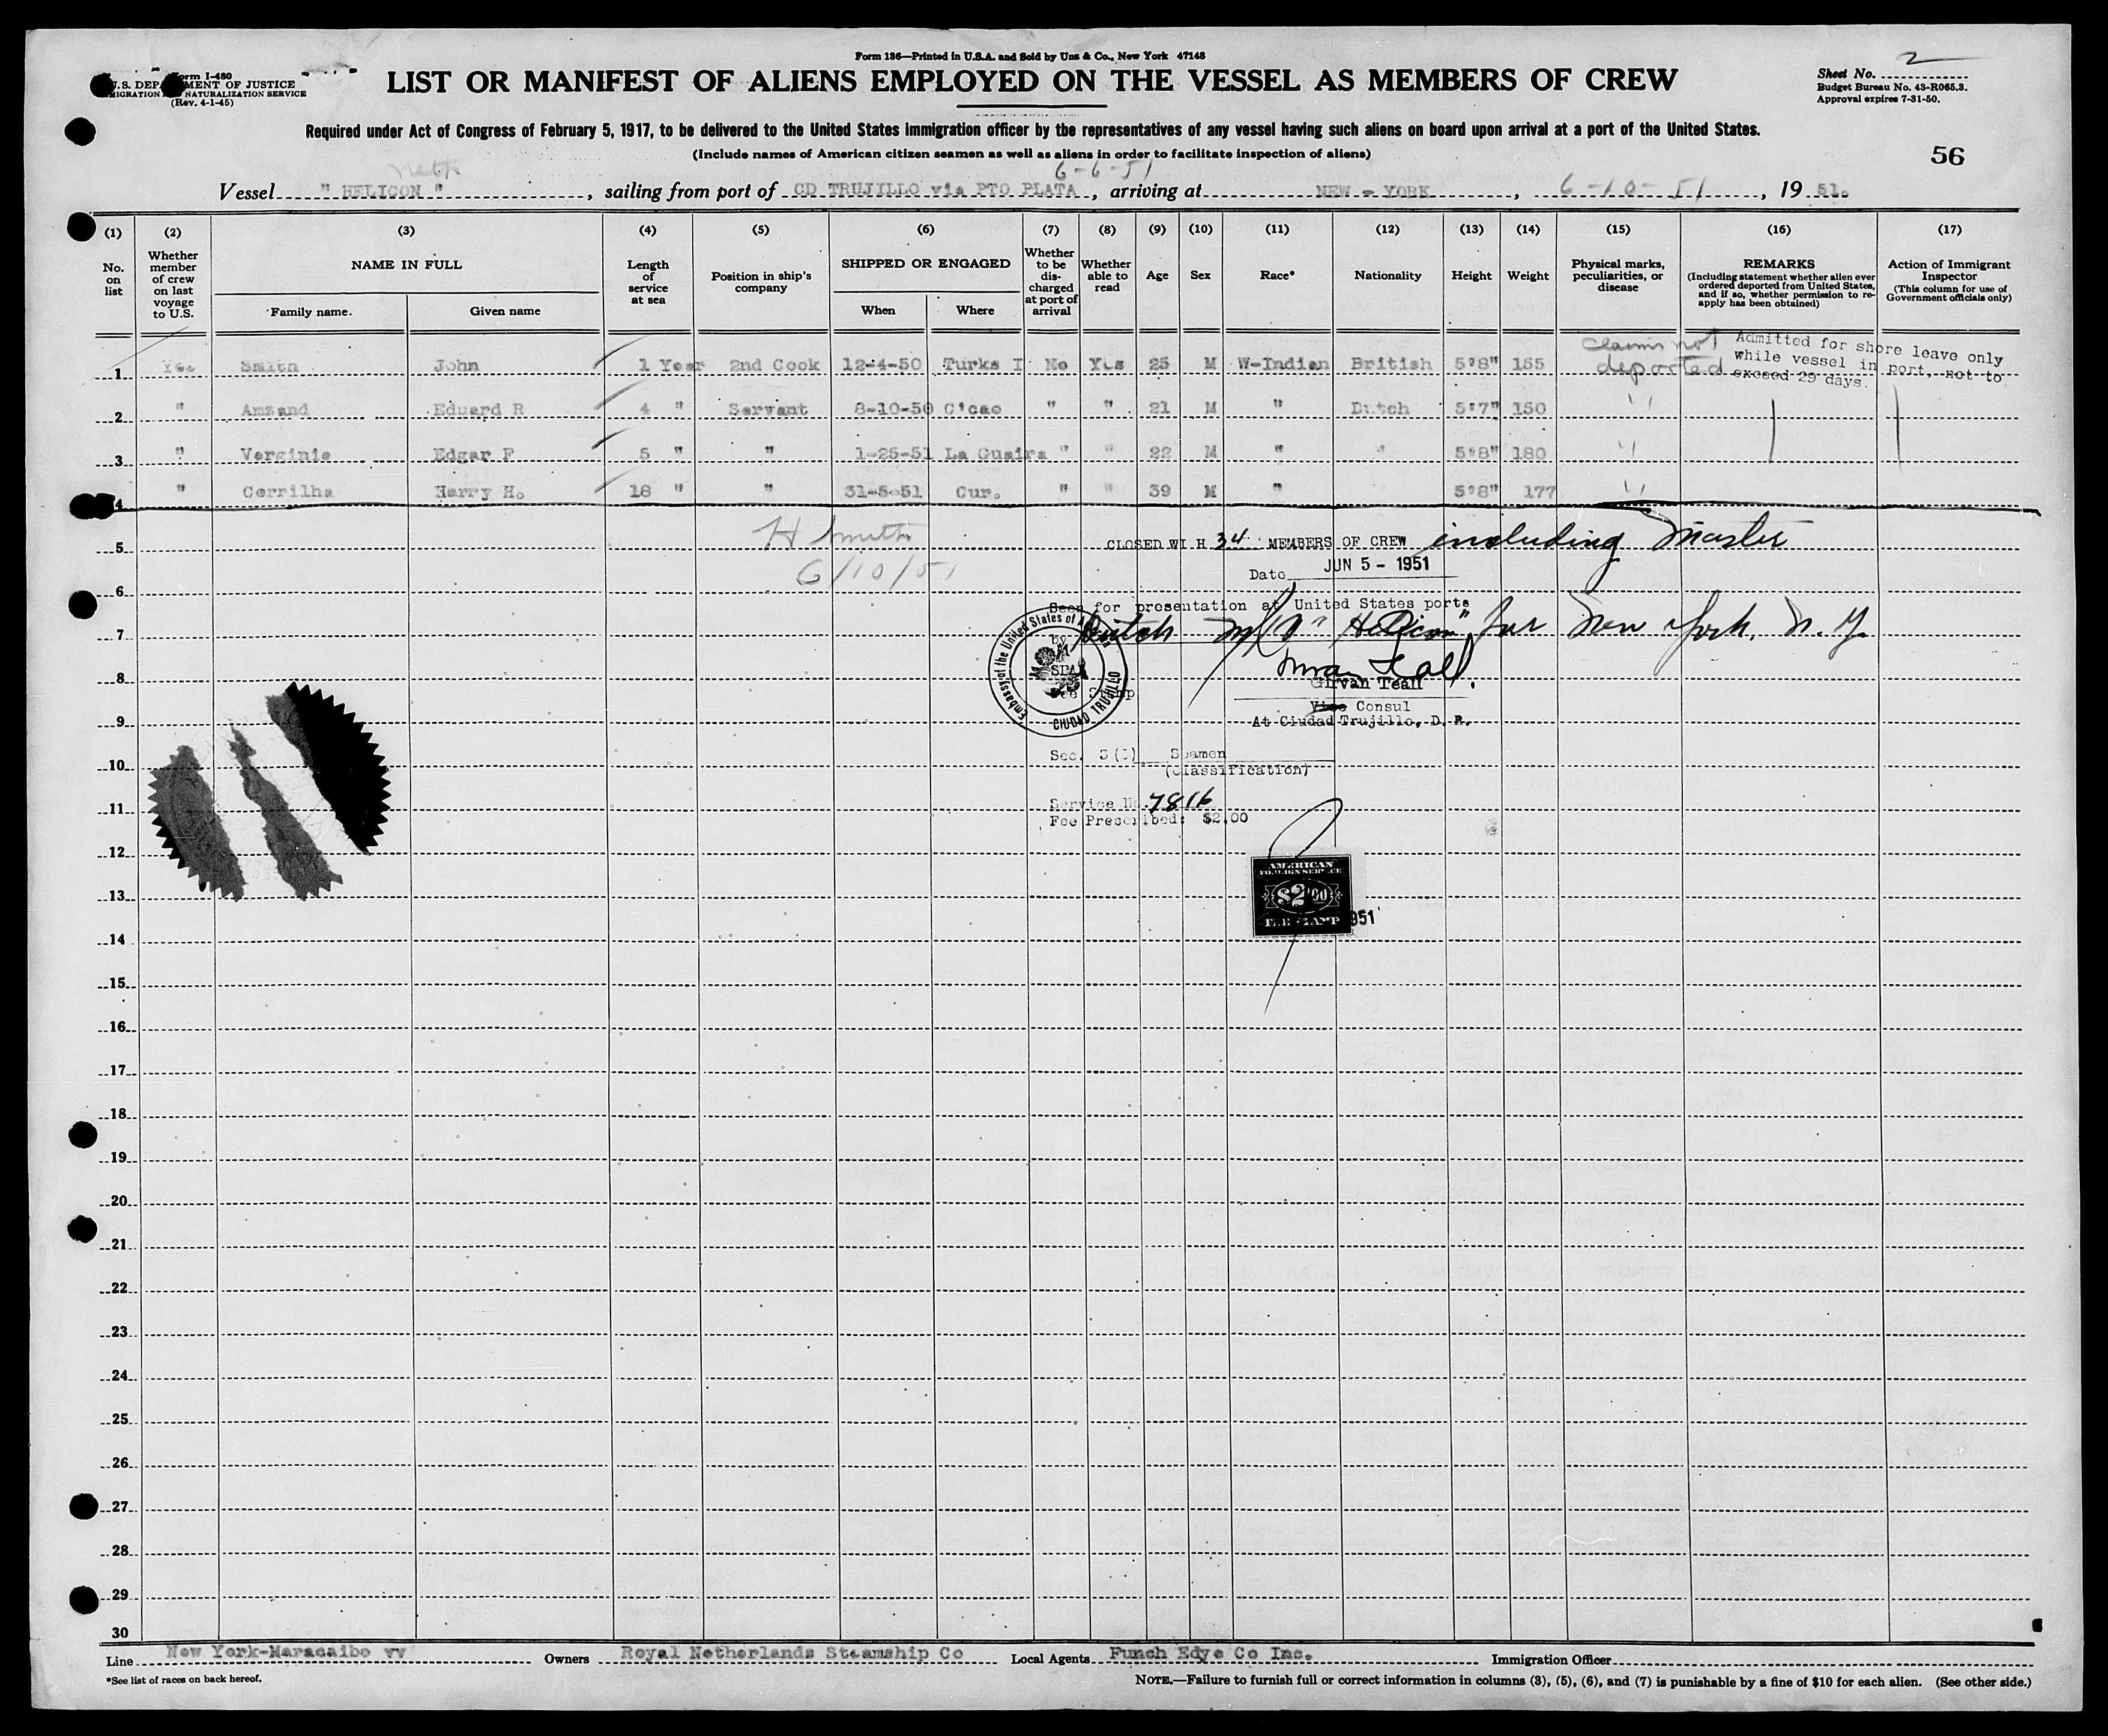 Form 136—Printed in U.S.A. and Sold by Uns & Co., New York 47148
Form I-480
U.S. DEPARTMENT OF JUSTICE
IMMIGRATION NATURALIZATION SERVICE
(Rev. 4-1-45)
LIST OR MANIFEST OF ALIENS EMPLOYED ON THE VESSEL AS MEMBERS OF CREW
Sheet No. 2
Budget Bureau No. 43-R065.3.
Approval expires 7-31-50.
Required under Act of Congress of February 5, 1917, to be delivered to the United States immigration officer by the representatives of any vessel having such aliens on board upon arrival at a port of the United States.
(Include names of American citizen seamen as well as aliens in order to facilitate inspection of aliens)
56
Neth 6-6-51
Vessel " HELICON " , sailing from port of CD TRUJILLO via PTO PLATA , arriving at NEW - YORK , 6-10-51 , 19 51.
(1) (2) (3) (4) (5) (6) (7) (8) (9) (10) (11) (12) (13) (14) (15) (16) (17)
No. on list
Whether member of crew on last voyage to U.S.
NAME IN FULL
Family name. Given name
Length of service at sea
Position in ship's company
SHIPPED OR ENGAGED
When Where
Whether to be discharged at port of arrival
Whether able to read
Age
Sex
Race*
Nationality
Height
Weight
Physical marks, peculiarities, or disease
REMARKS
(Including statement whether alien ever ordered deported from United States, and if so, whether permission to re-apply has been obtained)
Action of Immigrant Inspector
(This column for use of Government officials only)
1 Yes Smith John 1 Year 2nd Cook 12-4-50 Turks I No Yes 25 M W-Indian British 5'8" 155 claims not deported
Admitted for shore leave only
while vessel in port, not to
exceed 29 days.
2 " Amzand Eduard R 4 " Servant 8-10-50 C'cao " " 21 M " Dutch 5'7" 150 "
3 " Verginie Edgar F 5 " " 1-25-51 La Guaira " " 22 M " " 5'8" 180 "
4 " Corrilha Harry H. 18 " " 31-5-51 Cur. " " 39 M " 5'8" 177 "
H Smith
6/10/51
5
CLOSED WITH 34 MEMBERS OF CREW including Master
Date JUN 5 - 1951
6
Seen for presentation at United States ports
7
by Dutch M/V "Helicon" for New York, N. Y.
Embassy of the United States of America
CIUDAD TRUJILLO
SEAL
Fee Stamp
8
Girvan Teall
Vice Consul
At Ciudad Trujillo, D. R.
9
10
Sec. 3(5) Seamen
(Classification)
11
Service No. 7816
Fee Prescribed: $2.00
12
13
AMERICAN
FOREIGN SERVICE
$2.00
FEE STAMP
951
14
15
16
17
18
19
20
21
22
23
24
25
26
27
28
29
30
Line New York-Maracaibo vv Owners Royal Netherlands Steamship Co Local Agents Funch Edye Co Inc. Immigration Officer
*See list of races on back hereof.
NOTE.—Failure to furnish full or correct information in columns (3), (5), (6), and (7) is punishable by a fine of $10 for each alien. (See other side.)